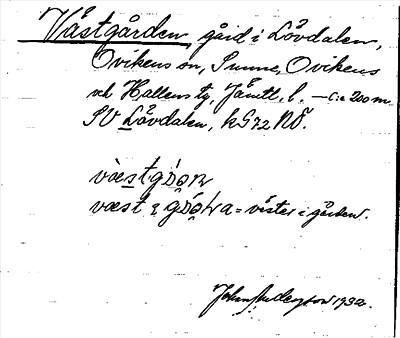 Västgården, gård i Lövdalen,
Ovikens sn, Sunne, Ovikens
och Hallens tg, Jämtl. l. — c:a 200 m
SV Lövdalen, kG72 NÖ.
væ̀stgɷ́ɷn
væst i gɷ́ɷra = väster i gården.
John Anderson 1932.